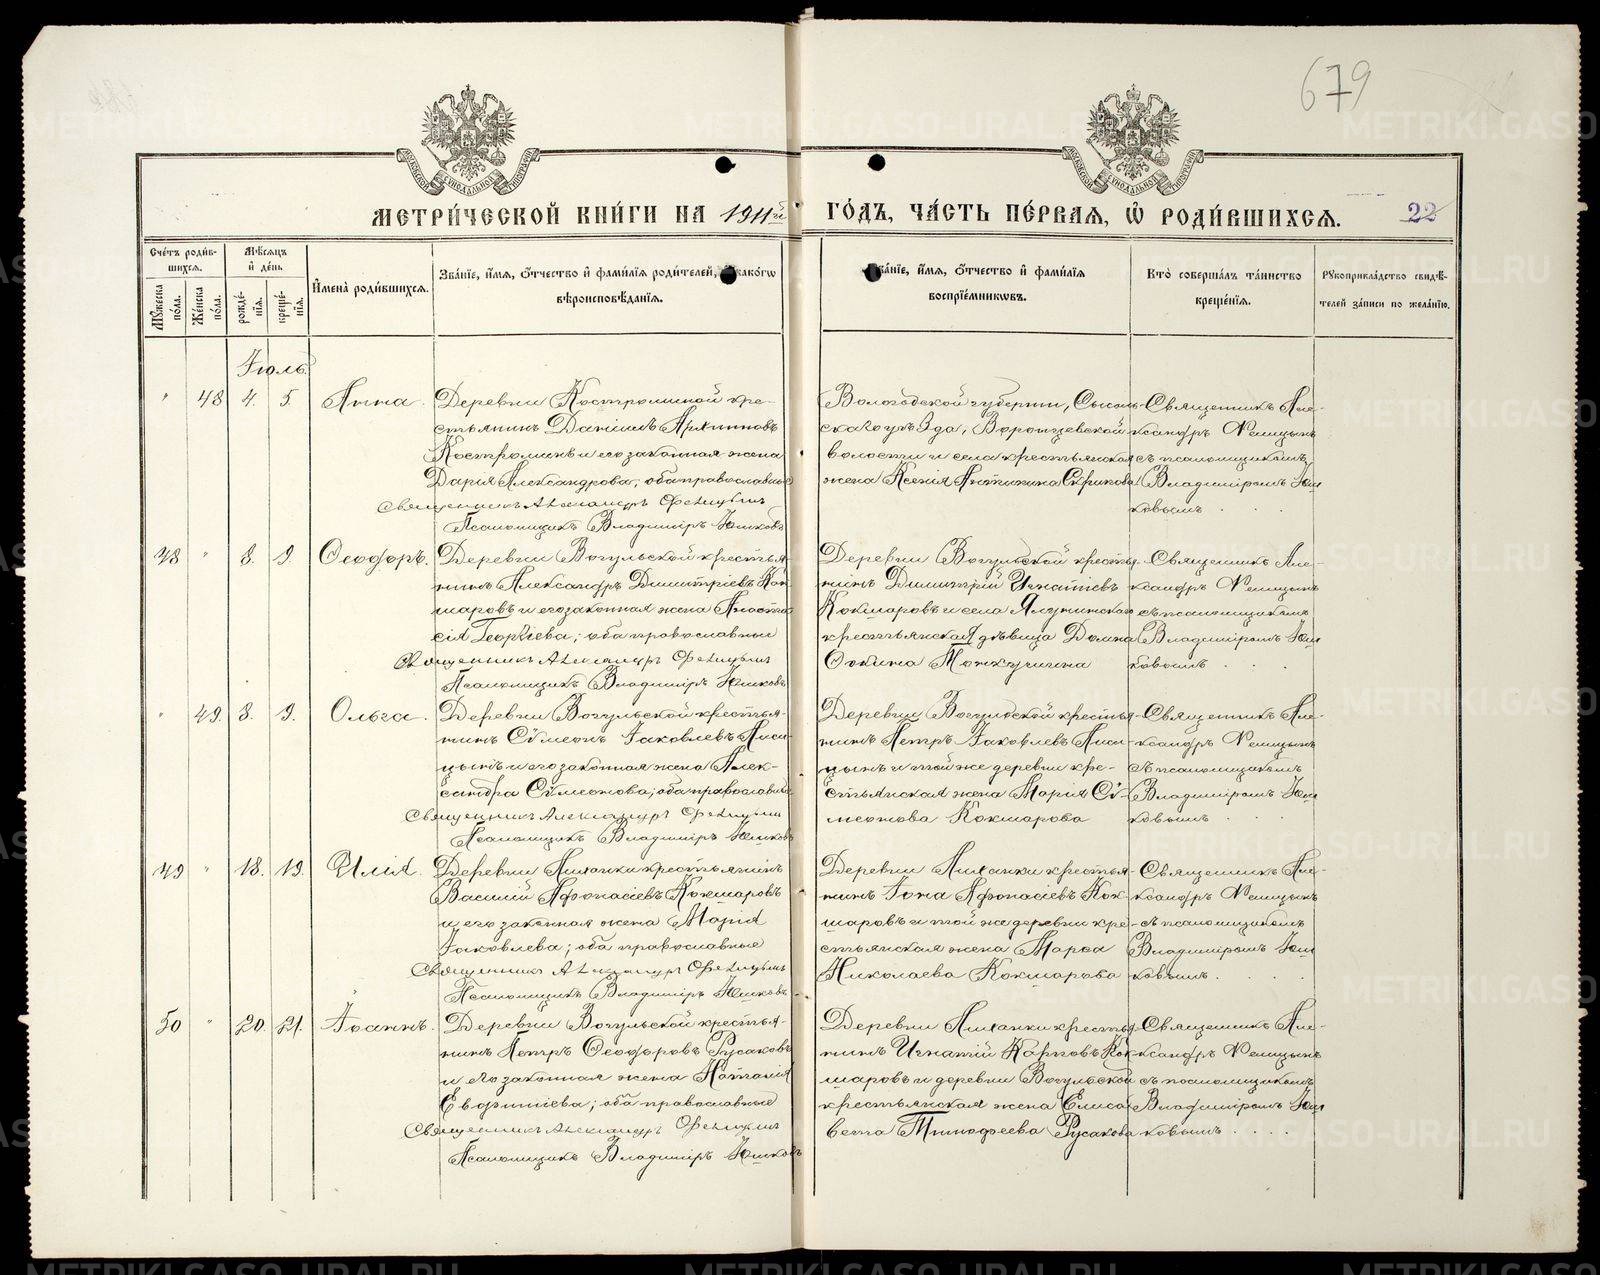 679
МОСКОВСКОЙ СУНОДАЛЬНОЙ ТИПОГРАФІИ
МОСКОВСКОЙ СУНОДАЛЬНОЙ ТИПОГРАФІИ
МЕТРИ́ЧЕСКОЙ КНИ́ГИ НА 1911й ГО́ДЪ, ЧА́СТЬ ПЕ́РВАЯ, Ѡ҆ РОДИ́ВШИХСЯ.
22
Сче́тъ роди́в-
шихся.
Мꙋ́жеска по́ла.
Же́нска по́ла.
Мѣ́сяцъ
и҆ де́нь
рожде́-
нїя.
креще́-
нїя.
И҆мена̀ роди́вшихся.
Зва́нїе, и҆́мя, ѻ҆́тчество и҆ фами́лїя роди́телей, како́гѡ
вѣроисповѣ́данїя.
Зва́нїе, и҆́мя, ѻ҆́тчество и҆ фами́лїя
воспрїе́мникѡвъ.
Кто̀ соверша́лъ та́инство
креще́нїя.
Рꙋкоприкла́дство свидѣ́-
телей за́писи по жела́нїю.
Іюль
" 48 4. 5. Анна.
Деревни Костромской кре-
стьянинъ Даніилъ Архиповъ
Костроминъ и его законная жена
Дарія Александрова; оба православные
Священникъ Александръ
Псаломщикъ Владиміръ Юшковъ
Вологодской губерніи, Сысоль-
скаго уѣзда, Воронцевской
волости и села крестьянская
жена Ксенія Антипина
Священникъ Але-
ксандръ
съ псаломщикомъ
Владиміромъ Юш
ковымъ.
48 " 8. 9. Ѳеодоръ.
Деревни Вогульской крестья-
нинъ Александръ Димитріевъ Кок
шаровъ и его законная жена Анаста
сія Георгіева; оба православные
Священникъ Александръ
Псаломщикъ Владиміръ Юшковъ
Деревни Вогульской кресть-
нинъ Димитрій Игнатіевъ
Кокшаровъ и села Ялунинскаго
крестьянская дѣвица Домна
Священникъ Але-
ксандръ
съ псаломщикомъ
Владиміромъ Юш
ковымъ.
" 49. 8. 9. Ольга.
Деревни Вогульской крестья-
нинъ Сѵмеонъ Іаковлевъ Лиси
цынъ и его законная жена Алек-
сандра Сѵмеонова; оба православные
Священникъ Александръ
Псаломщикъ Владиміръ Юшковъ
Деревни Вогульской крестья-
нинъ Петръ Іаковлевъ Лиси-
цынъ и той же деревни кре-
стьянская жена Марія Сѵ-
меонова Кокшарова
Священникъ Але-
ксандръ
съ псаломщикомъ
Владиміромъ Юш
ковымъ.
49 " 18. 19. Илія.
Деревни крестьянинъ
Василій Афонасіевъ Кокшаровъ
и его законная жена Марія
Іаковлева; оба православные
Священникъ Александръ
Псаломщикъ Владиміръ Юшковъ
Деревни крестья-
нинъ Іона Афонасіевъ Кок-
шаровъ и той же деревни кре-
стьянская жена Марѳа
Николаева Кокшарова
Священникъ Але-
ксандръ
съ псаломщикомъ
Владиміромъ Юш
ковымъ.
50 " 20. 21. Іоаннъ.
Деревни Вогульской крестья-
нинъ Петръ Ѳеодоровъ Русаковъ
и его законная жена Наталія
Евфиміева; оба православные
Священникъ Александръ
Псаломщикъ Владиміръ Юшковъ
Деревни крестья-
нинъ Игнатій Карповъ Кок-
шаровъ и деревни Вогульской
крестьянская жена Елиса
вета Тимофеева Русакова
Священникъ Але-
ксандръ
съ псаломщикомъ
Владиміромъ Юш
ковымъ.
METRIKI.GASO-URAL.RU